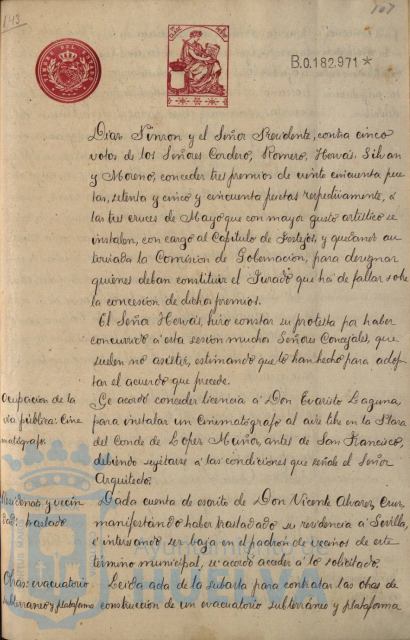 143
107
B.0.182.971*
Diaz Pinzon y el Señor Presidente, contra cinco
votos de los Señores Cordero, Romero, Hervás, Silvan
y Moreno, conceder tres premios de ciento cincuenta pese
tas, setenta y cinco y cincuenta pesetas respectivamente, á
las tres cruces de Mayo que con mayor gusto artístico se
instalen, con cargo al Capítulo de Festejos, y quedamos au
torizada la Comisión de Gobernación, para designar
quienes deban constituir el Jurado que há de fallar sobre
la concesión de dichos premios.
El Señor Hervás, hizo constar su protesta por haber
concurrido á esta sesión muchos Señores Concejales, que
suelen no asistir, estimando que lo han hecho para adop
tar el acuerdo que precede.
Ocupación de la
via pública: Cine
matógrafo.
Se acordó conceder licencia á Don Evaristo Laguna
para instalar un Cinematógrafo al aire libre en la Plaza
del Conde de López Muñoz, antes de San Francisco,
debiendo sujetarse á las condiciones que señale el Señor
Arquitecto.
Residencia y vecin
dad: traslado
Dada cuenta de escrito de Don Vicente Alvarez Cruz,
manifestando haber trasladado su residencia á Sevilla,
é interesando ser baja en el padrón de vecinos de este
término municipal, se acordó acceder á lo solicitado.
Obras: evacuatorio
subterraneo y plataforma
Leida acta de la subasta para contratar las obras de
construcción de un evacuatorio subterráneo y plataforma